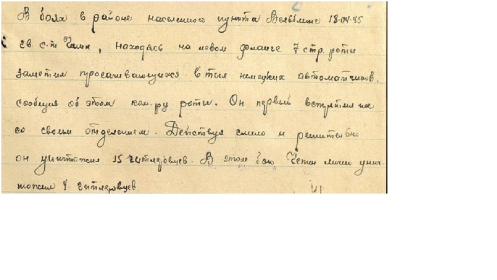 В боях в районе населенного пункта 18.04.45
гв с-т находясь на левом фланге 7 стр. роты
заметил просачивающихся в тыл немецких автоматчиков,
сообщил об этом ком-ру роты. Он первый встретил их
со своим отделением. Действуя смело и решительно
он уничтожил 15 гитлеровцев. В этом бою лично унич
тожил 4 гитлеровцев